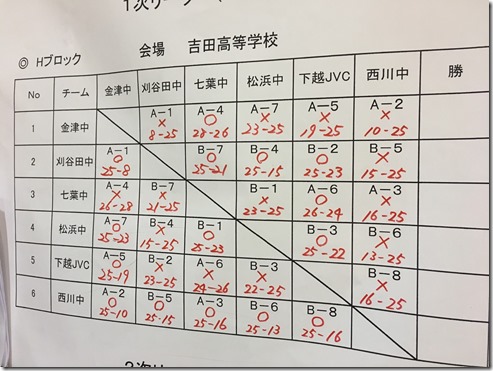 ◎ Hブロック 会場 吉田高等学校
No チーム 金津中 刈谷田中 七葉中 松浜中 下越JVC 西川中 勝
1 金津中 A-1 A-4 A-7 A-5 A-2
× ○ × × ×
8-25 28-26 23-25 19-25 10-25
2 刈谷田中 A-1 B-7 B-4 B-2 B-5
○ ○ ○ ○ ×
25-8 25-21 25-15 25-23 15-25
3 七葉中 A-4 B-7 B-1 A-6 A-3
× × × ○ ×
26-28 21-25 23-25 26-24 16-25
4 松浜中 A-7 B-4 B-1 B-3 B-6
○ × ○ ○ ×
25-23 15-25 25-23 25-22 13-25
5 下越JVC A-5 B-2 A-6 B-3 B-8
○ × × × ×
25-19 23-25 24-26 22-25 16-25
6 西川中 A-2 B-5 A-3 B-6 B-8
○ ○ ○ ○ ○
25-10 25-15 25-16 25-13 25-16